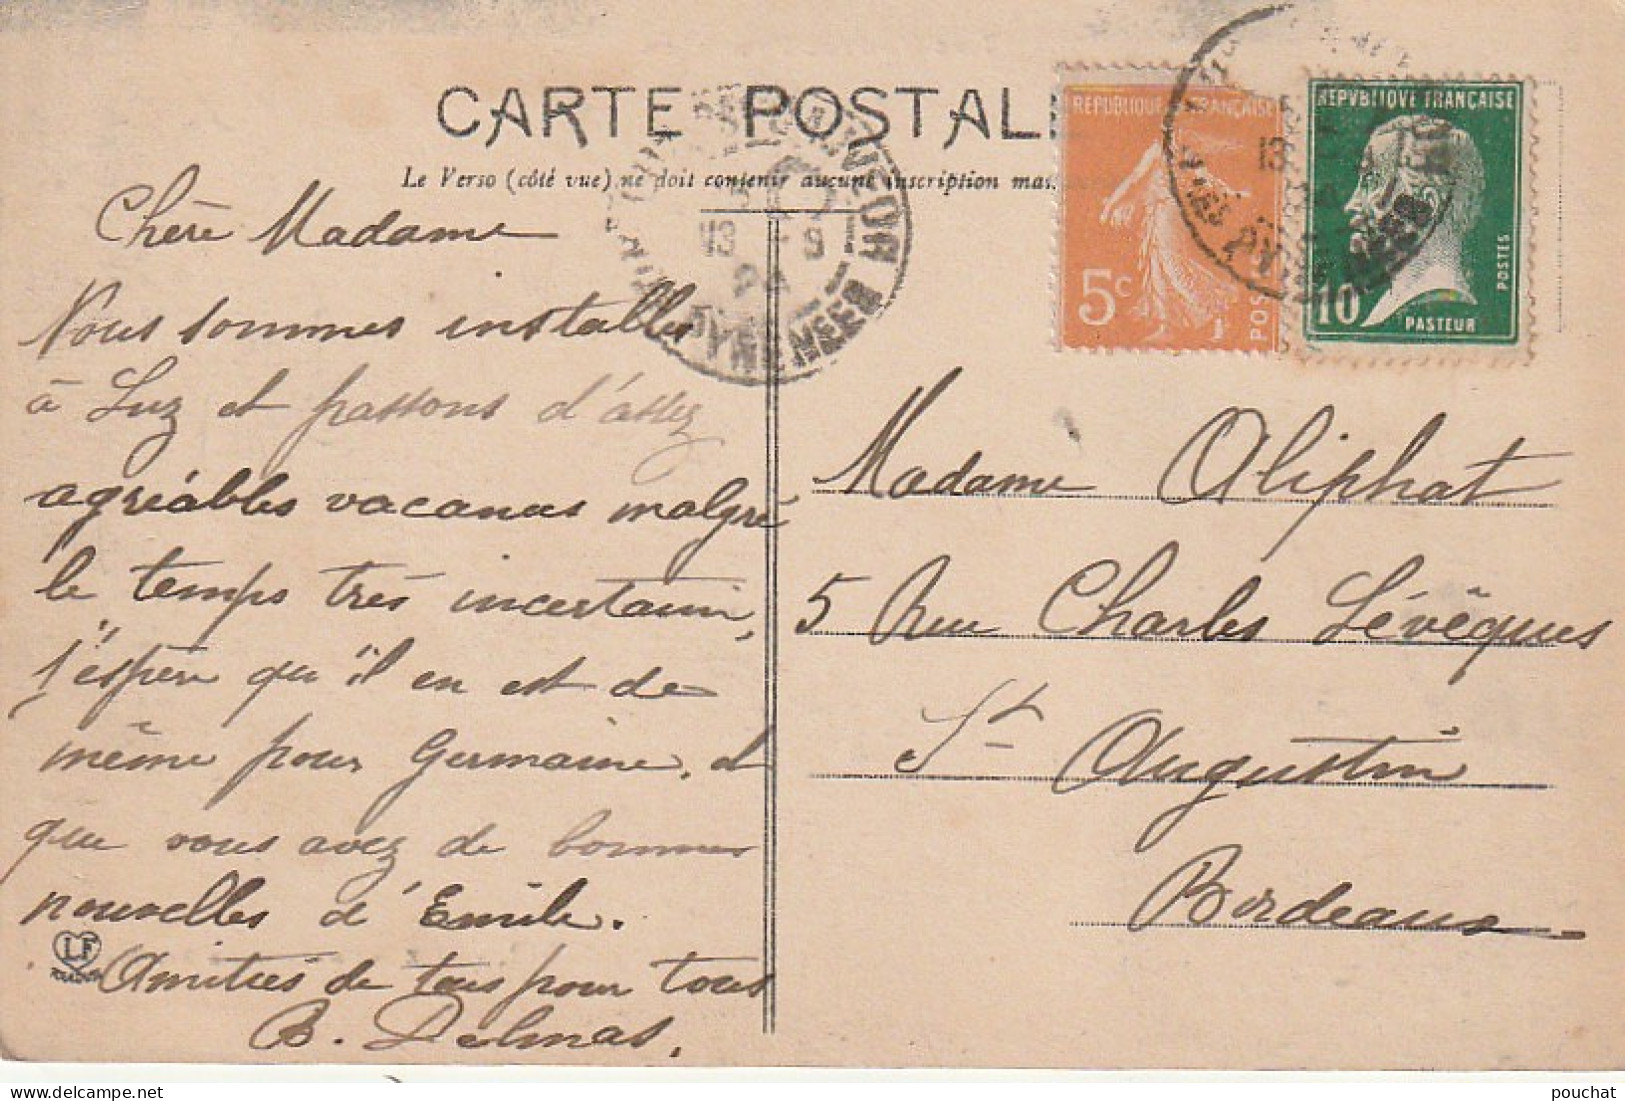 CARTE POSTAL
Le Verso (côté vue) ne doit contenir aucune inscription
RÉPUBLIQUE FRANÇAISE
5c
POSTES
REPVBLIQVE FRANÇAISE
10
POSTES
PASTEUR
13
13 - 8
24
PYRÉNÉES
Chère Madame
Nous sommes installés
à Luz et passons d'assez
agréables vacances malgré
le temps très incertain,
j'espère qu'il en est de
même pour Germaine, et
que vous avez de bonnes
nouvelles d'Emile.
Amitiés de tous pour tous
B. Delmas.
LF
Madame Oliphat
5 Rue Charles Lévêques
St Augustin
Bordeaux
pouchat